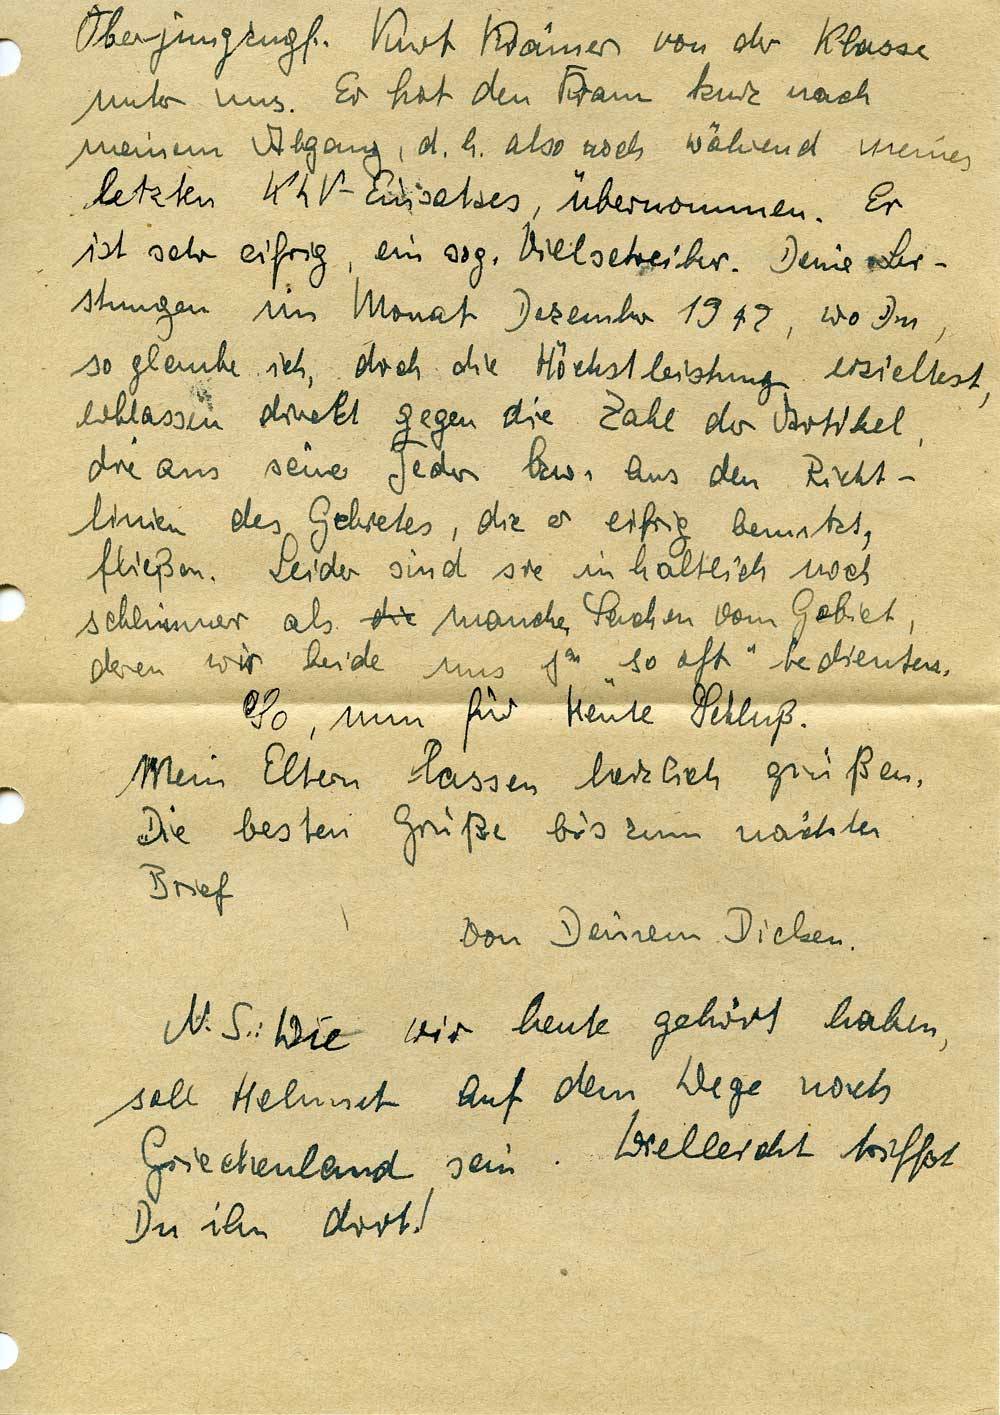 Oberjungzugf. Kurt Krämer von der Klasse
unter uns. Er hat den Kram kurz nach
meinem Abgang, d. h. also noch während meines
letzten KLV-Einsatzes, übernommen. Er
ist sehr eifrig, ein sog. Vielschreiber. Deine Lei-
stungen im Monat Dezember 1942, wo Du,
so glaube ich, doch die Höchstleistung erzieltest,
erblassen direkt gegen die Zahl der Artikel,
die aus seiner Feder bzw. aus den Richt-
linien des Gebietes, die er eifrig benutzt,
fließen. Leider sind sie inhaltlich noch
schlimmer als die manche Sachen vom Gebiet,
deren wir beide uns ja "so oft" bedienten.
So, nun für Heute Schluß.
Mein Eltern lassen herzlich grüßen.
Die besten Grüße bis zum nächsten
Brief
von Deinem Dicken.
N. S.: Wie wir heute gehört haben,
soll Helmut auf dem Wege nach
Griechenland sein. Vielleicht triffst
Du ihn dort!